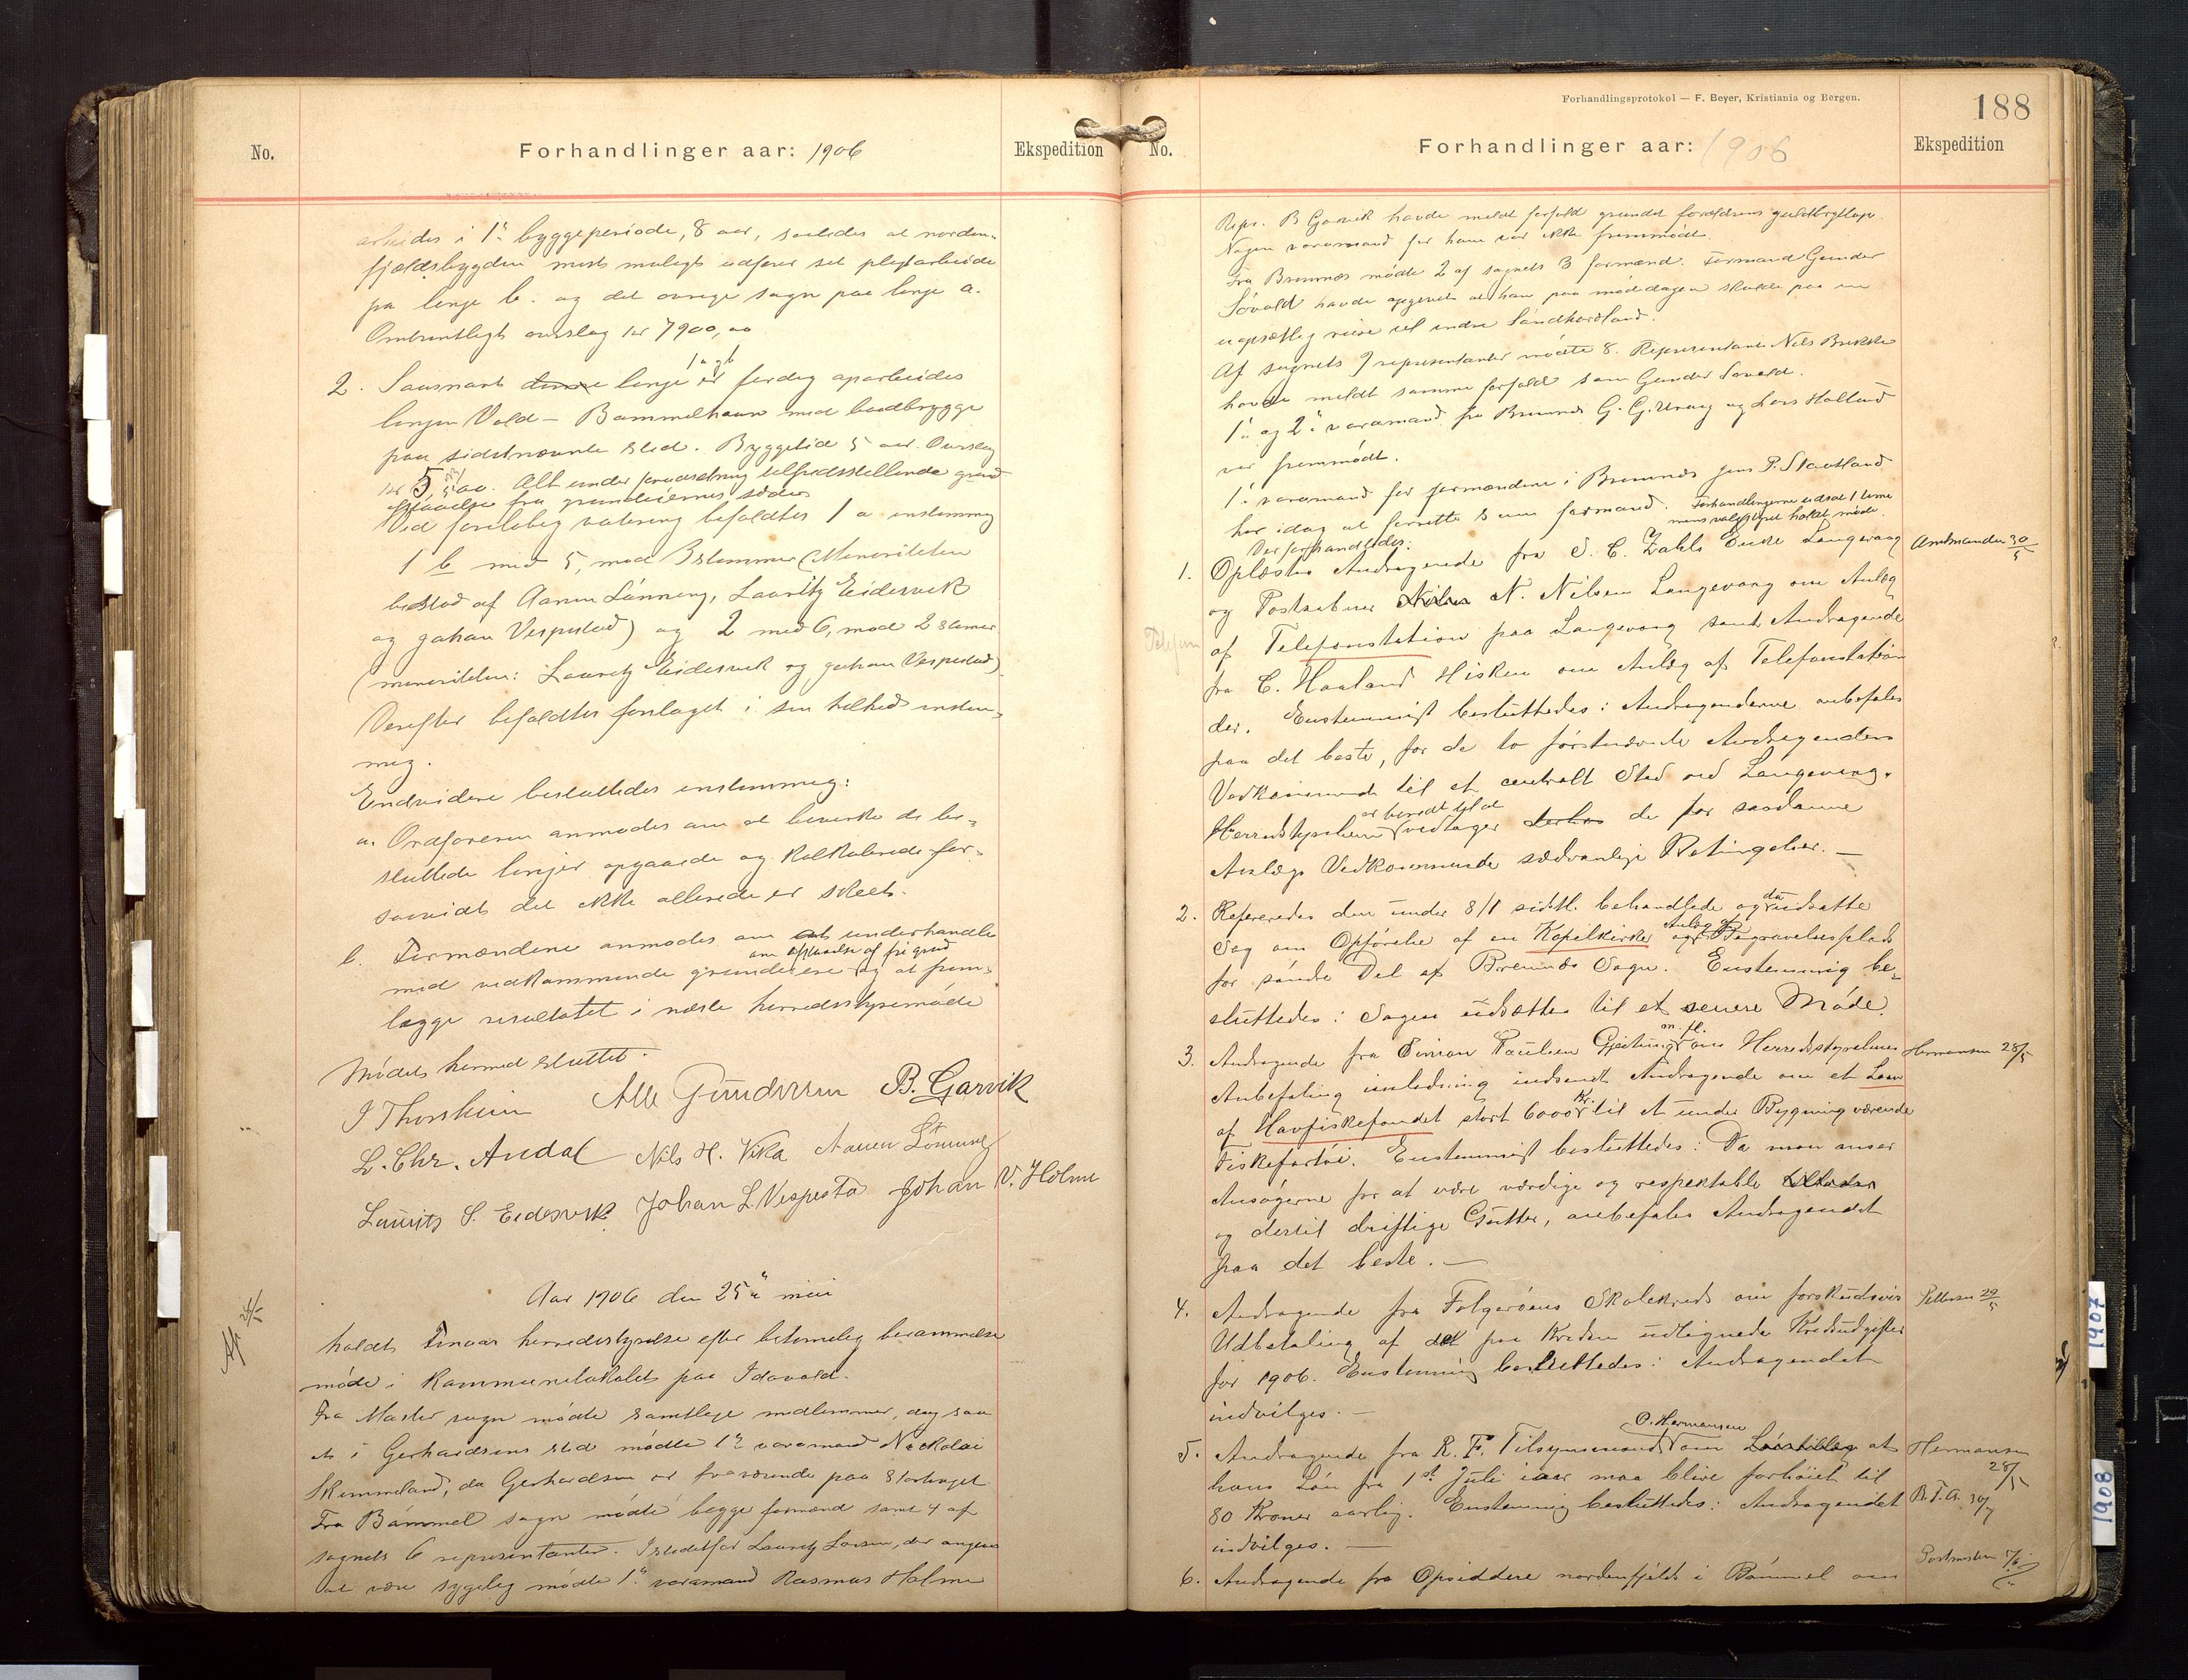 No.
Forhandlinger aar: 1906
Ekspedition
arbeides i 1ste byggeperiode, 8 aar, saaledes at norden-
fjeldsbygden mest muligt udfører sit pligtarbeide
pa linje b. og det øvrige sogn paa linje a.
Omtrentligt overslag kr 7900,00
2. Saasnart linje 1a og b er færdig oparbeides
linjen Vold - Bømmelhavn med baadbrygge
paa sidstnævnte sted. Byggetid 5 aar. Overslag
kr 5,500. Alt under forudsætning tilfredsstillende grund-
afstaaelse fra grundeiernes side
Ved foreløbig votering befaldtes 1 a enstemmig
1 b med 5, mod 3 stemmer (Minoriteten
bestod af Aamun Lønning, Lauritz Eidesvik
og Johan Vespestad) og 2 med 6, mod 2 stemmer
(minoriteten: Lauritz Eidesvik og Johan Vespestad).
Derefter befaldtes forslaget i sin helhed enstem-
mig.
Endvidere besluttedes enstemmig:
a. Ordføreren anmodes om at bevirke de be-
sluttede linjer opgaaede og kalkulerede for-
saavidt det ikke allerede er skeet.
b. Formændene anmodes om at underhandle
med vedkommende grundeiere om afstaaelse af fri grund og at frem-
lægge resultatet i næste herredsstyremøde
Mødet hermed sluttet.
J Thorsheim Alle Gundersen B. Garvik
L. Chr. Andal Nils H. Vika Aamun Lønning
Laurits S. Eidesvik Johan L. Vespesta Johan V. Holme
Aar 1906 den 25de mai
holdt Finaas herredsstyrelse efter betimelig berammelse
møde i kommunelokalet paa Idavold.
Fra Moster sogn mødte samtlige medlemmer, dog saa
at i Gerhardsens sted mødte 1ste varamand Nikolai
Skimmeland, da Gerhardsen er fraværende paa Stortinget
Fra Bømmel sogn mødte begge formænd samt 4 af
sognets 6 repræsentanter. Istedetfor Lauritz Larsen, der angives
at være sygelig mødte 1ste varamand Rasmus Holme
Forhandlingsprotokol — F. Beyer, Kristiania og Bergen.
188
No.
Forhandlinger aar: 1906
Ekspedition
Repr. B Garvik havde meldt forfald grundet forældrens guldbryllup.
Nogen varamand for ham var ikke fremmødt.
Fra Bremnes mødte 2 af sognets 3 formænd. Formand Gunder
Søvold havde opgivet at han paa mødedagen skulde paa en
uopsættelig reise til indre Søndhordland.
Af sognets 9 repræsentanter mødte 8. Repræsentant Nils Brekke
havde meldt samme forfald som Gunder Søvold.
1ste og 2den varamand fra Bremnes G. G. Urang og Lars Hallund
var fremmødt.
1ste varamand for formændene i Bremnes Jens P. Stautland
har idag at forrette som formand. Forhandlingerne udsat 1 time
mens valgstyret holdt møde.
Der forhandledes:
1. Oplæstes Andragende fra S. C. Zahls Enke Langevaag
Amtmanden 30/5
og Postaabner N. Nilsen Langevaag om Anlæg
Telefon
af Telefonstation paa Langevaag samt Andragende
fra C. Haaland Hisken om Anlæg af Telefonstation
der. Enstemmigt besluttedes: Andragenderne anbefales
paa det beste, for de to førstnævnte Andragenders
Vedkommende til et centralt Sted ved Langevaag.
Herredsstyrelsen er beredt til at vedtager de for saadanne
Anlægs Vedkommende sædvanlige Betingelser. —
2. Refereredes den under 8/1 sidstl. behandlede og da udsatte
Sag om Opførelse af en Kapelkirke og Anlæg af Begravelsesplads
for søndre Del af Bremnes Sogn. Enstemmig be-
sluttedes: Sagen udsættes til et senere Møde.
3. Andragende fra Simon Paulsen Gjeitung m. fl. om Herredsstyrelsens
Hermansen 28/5
Anbefaling indsendt Andragende om et Laan
af Havfiskefondet stort 6000 Kr. til et under Bygning værende
Fiskefartøi. Enstemmigt besluttedes: Da man anser
Ansøgerne for at være værdige og respektable
og dertil driftige Gutter, anbefales Andragendet
paa det beste. —
4. Andragende fra Folgerøens Skolekreds om forskudsvis
Pettersen 29/5
Udbetaling af det paa Kredsen udlignede Kredsudgifter
for 1906. Enstemmig besluttedes: Andragendet
indvilges. —
5. Andragende fra R. F. Tilsynsmand O. Hermansen om Løntillæg at
Hermansen 28/5
hans Løn fra 1st Juli iaar maa blive forhøiet til
80 Kroner aarlig. Enstemmig besluttedes: Andragendet
R. F. A. 30/7
indvilges. —
6. Andragende fra Opsiddere nordenfjelds i Bømmel om
Postmesteren
1907
1908